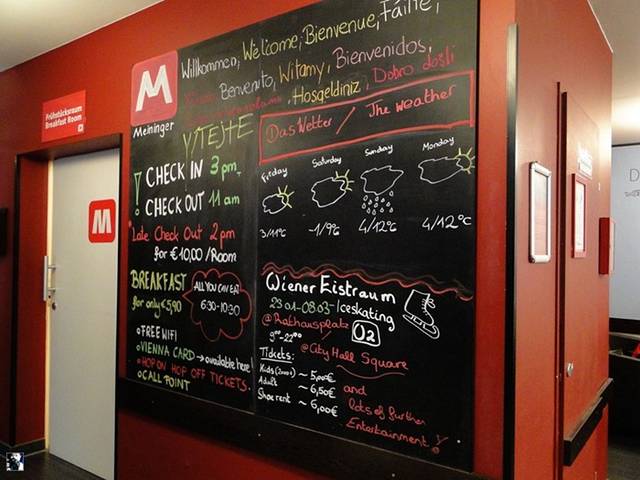 Frühstücksraum
Breakfast Room
M
Meininger
M
Willkommen, Welcome, Bienvenue, Fáilte,
Benvenito, Witamy, Bienvenidos,
Hoşgeldiniz Dobro došli
VÍTEJTE
! CHECK IN 3 pm,
! CHECK OUT 11 am
Late Check Out 2pm
for €10,00 /Room
BREAKFAST
for only €5,90
ALL YOU CAN EAT
6:30-10:30
FREE WIFI
VIENNA CARD → available here!
HOP ON HOP OFF TICKETS.
CALL POINT
Das Wetter / The weather
Friday Saturday Sunday Monday
3/11°C -1/9°C 4/12°C 4/12°C
Wiener Eistraum
23.01-08.03- Iceskating
@Rathausplatz U2
9⁰⁰-22⁰⁰ @City Hall Square
Tickets:
Kids ~ 5,00€
Adult ~ 6,50€ and
Shoe rent ~ 6,00€ lots of further
Entertainment!